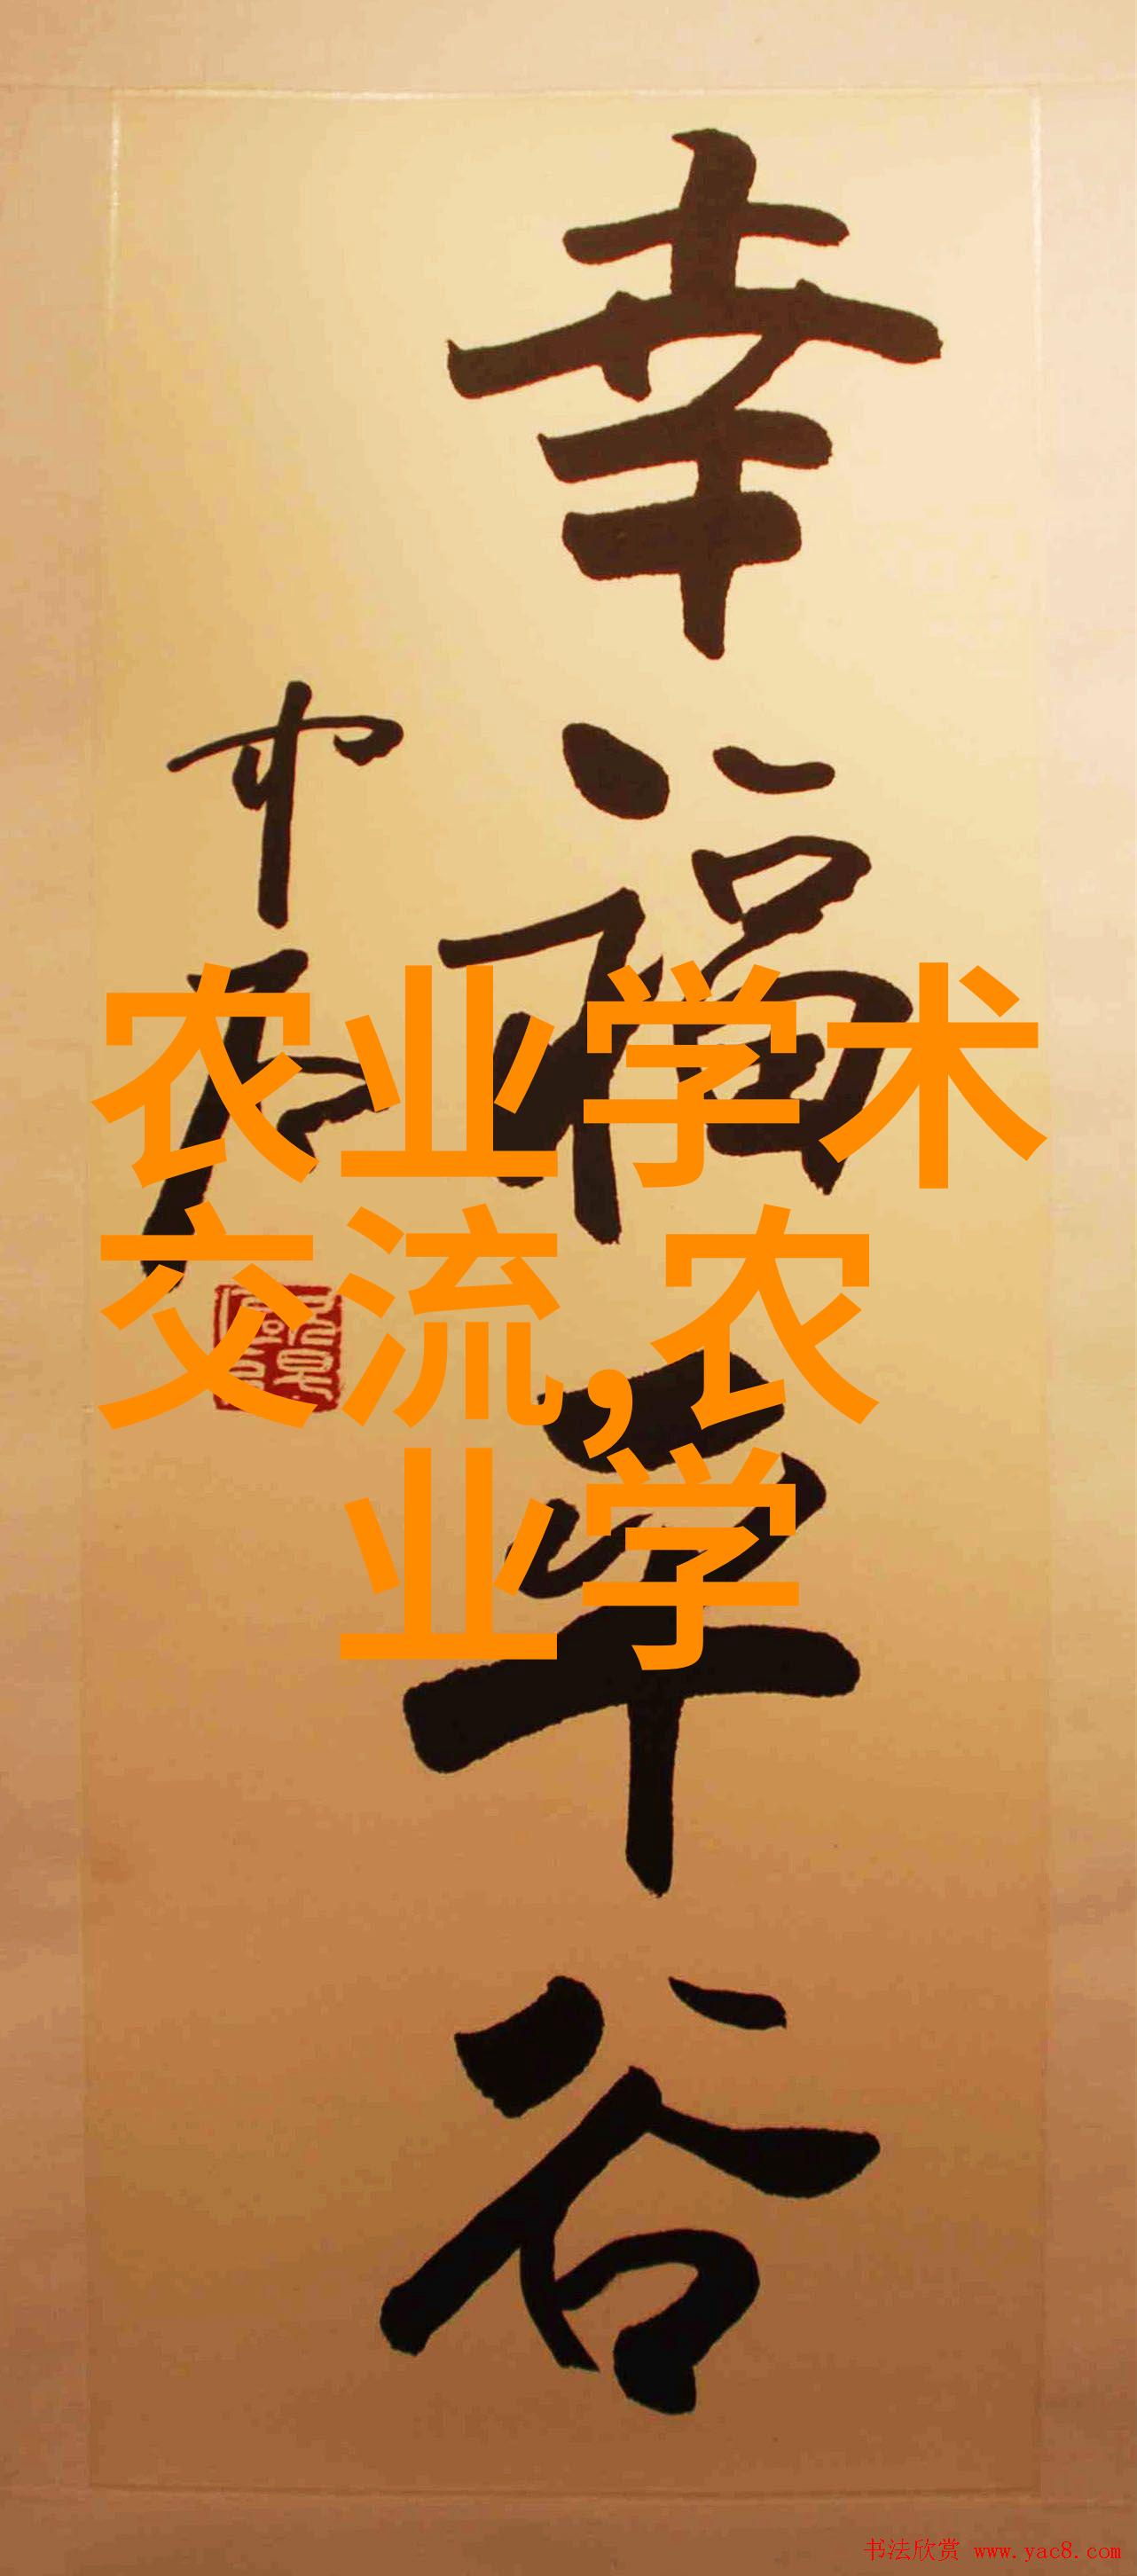 幸福草谷
中石
农业学术
交流,农
业学
书法欣赏 www.yac8.com